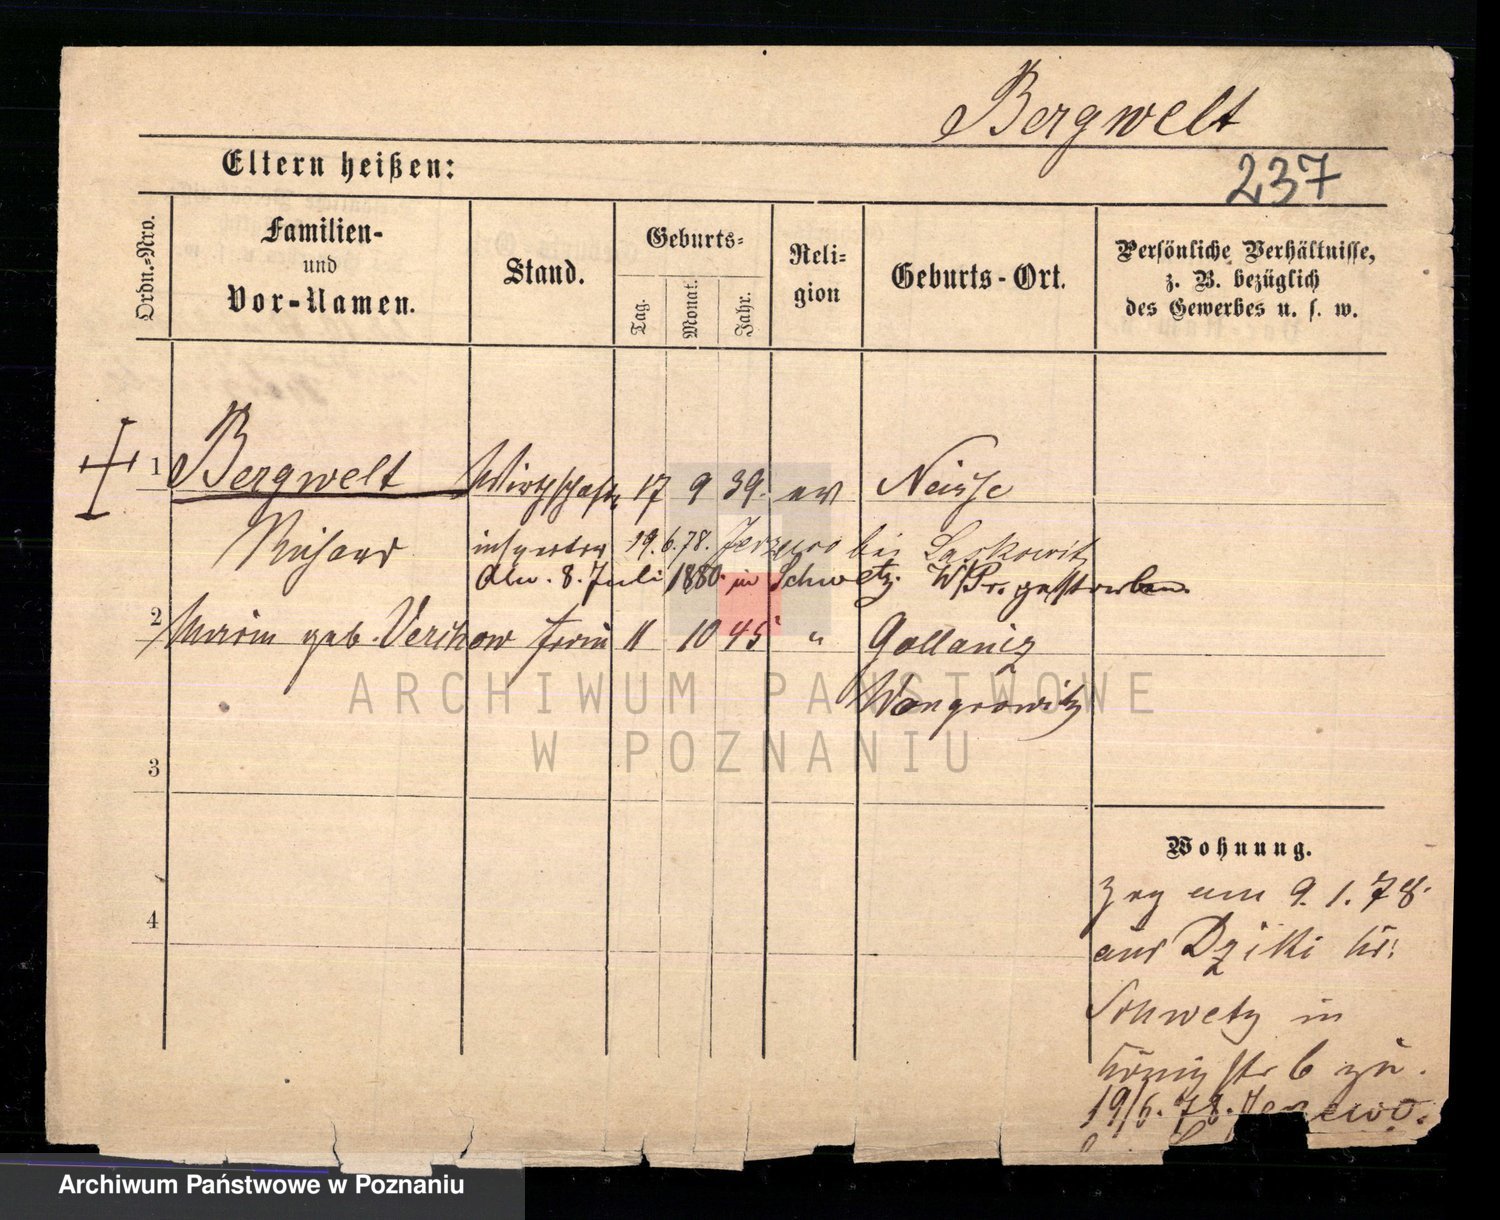 Bergwelt
Eltern heißen:
237
Ordn.-Nro.
Familien-
und
Vor-Namen.
Stand.
Geburts-
Tag.
Monat.
Jahr.
Reli-
gion
Geburts-Ort.
Persönliche Verhältnisse,
z. B. bezüglich
des Gewerbes u. s. w.
1 Bergwelt Wirthschafts 17 9 39. ev Neisse
Richard inspector 19.6.78. Jerzewo bei Laskowitz
Am. 8. Juli 1880. in Schwetz. W/Pr. gestorben.
2 Maria geb. Verchow Frau 11 10 45 " Gollancz
Wongrowitz
3
4
ARCHIWUM PAŃSTWOWE
W POZNANIU
Wohnung.
Zug am 9.1.78.
aus Dziki Kr:
Schwetz in
Königstr 6 zu.
19/6.78. Jerzewo.
Archiwum Państwowe w Poznaniu